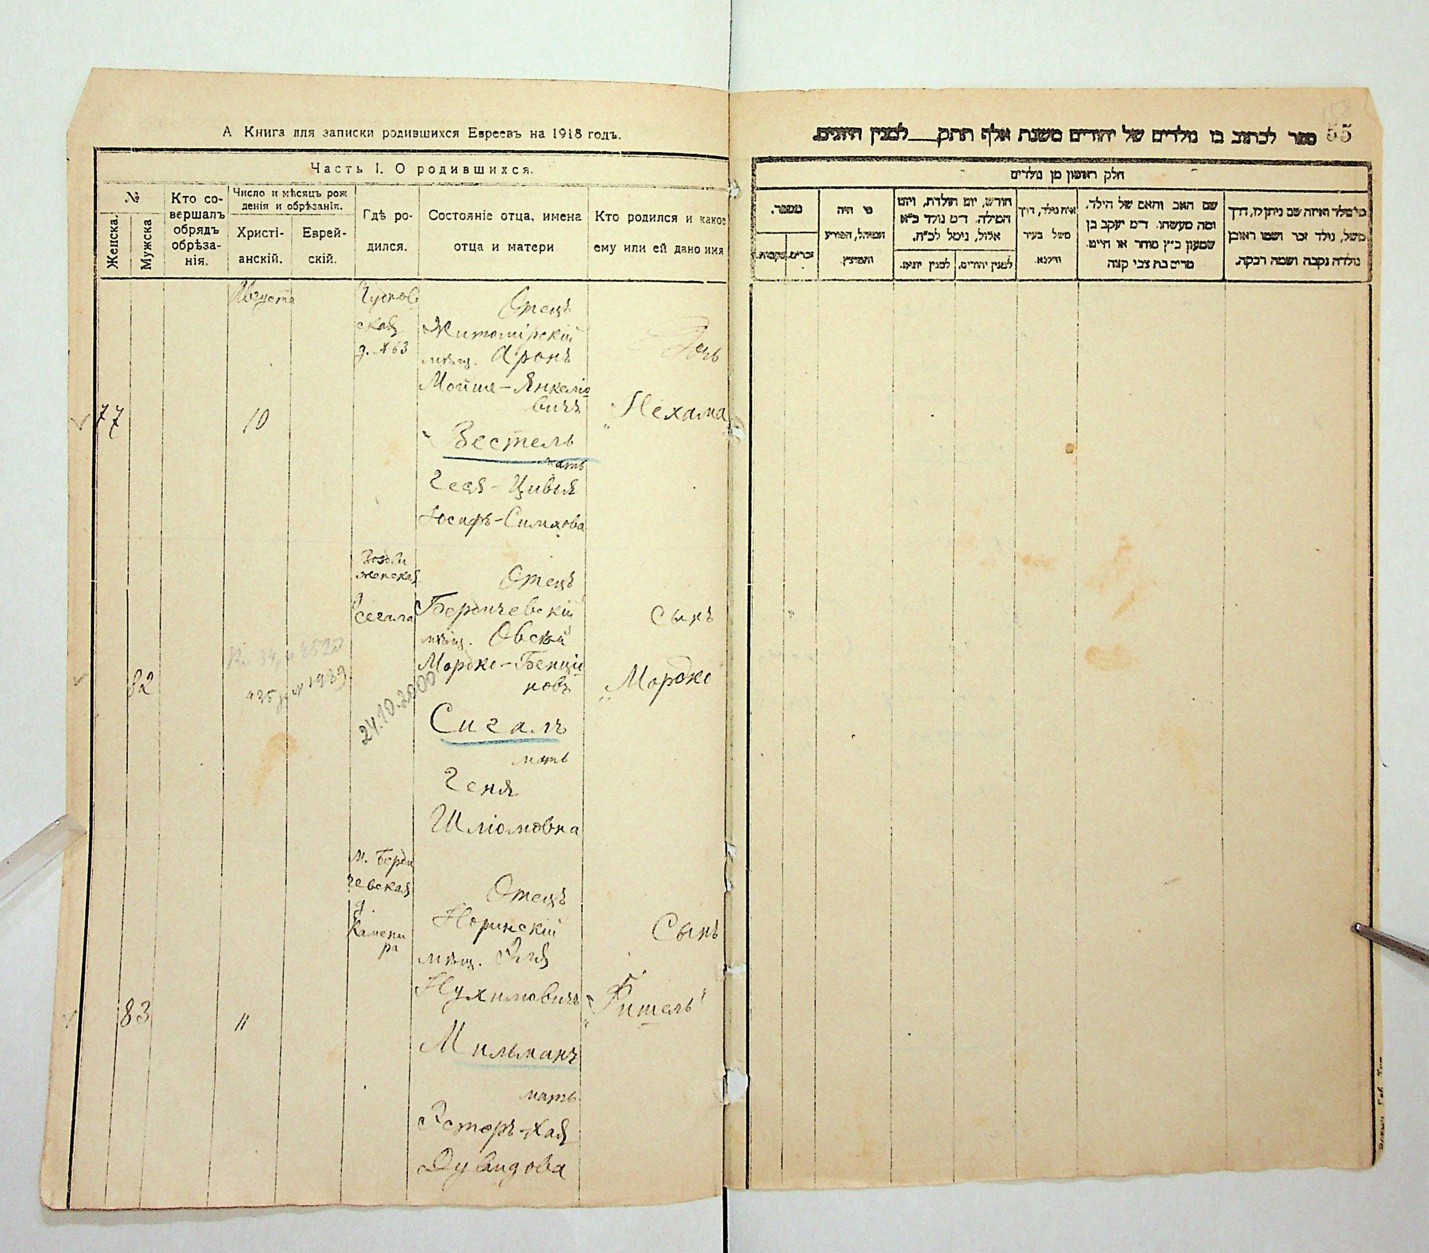 А Книга для записки родившихся Евреевъ на 1918 годъ.
Часть I. О родившихся.
№
Женска.
Мужска
Кто со-
вершалъ
обрядъ
обрѣза-
нія.
Число и мѣсяцъ рож
денія и обрѣзанія.
Христі-
анскій.
Еврей-
скій.
Гдѣ ро-
дился.
Состояніе отца, имена
отца и матери
Кто родился и какое
ему или ей дано имя
77
Августъ
10
ская
д. №63
Отецъ
Житомірскій
мѣщ. Аронъ
Мойше-Янкелю
вичъ
Вестель
мать
Геся-Цивья
Іосифъ-Симхова
Дочь
Нехама
82
24.10.2000
Сегала
Отецъ
Бердичевскій
мѣщ. Овсей
Мордко-Бенціо
новъ
Сигалъ
мать
Геня
Шліомовна
Сынъ
„Мордко
83
"
м. Берди
чевская
д.
Камени
ра
Отецъ
Норинскій
мѣщ. Эля
Нухимовичъ
Мильманъ
мать
Эстеръ-Хая
Дувидова
Сынъ
55
ספר לכתוב בו נולדים של יהודים משנת אלף תתק___ למנין היונים.
חלק ראשון מן נולדים
מספר.
זכרים
נקבות.
מי היה
המוהל, הפורע
והמוצץ.
חודש, יום הולדת, ויום
המילה. ד״מ נולד כ״א
אלול, נימול לכ״ח.
למנין יונים.
למנין יהודים.
איה נולד, דרך
משל בעיר
ווילנא
שם האב והאם של הילד,
ומה מעשהו. ד״מ יעקב בן
שמעון כ״ץ סוחר או חייט.
מרים בת צבי קצה
מי נולד ואיזה שם ניתן לו, דרך
משל, נולד זכר ושמו ראובן
נולדה נקבה ושמה רבקה.